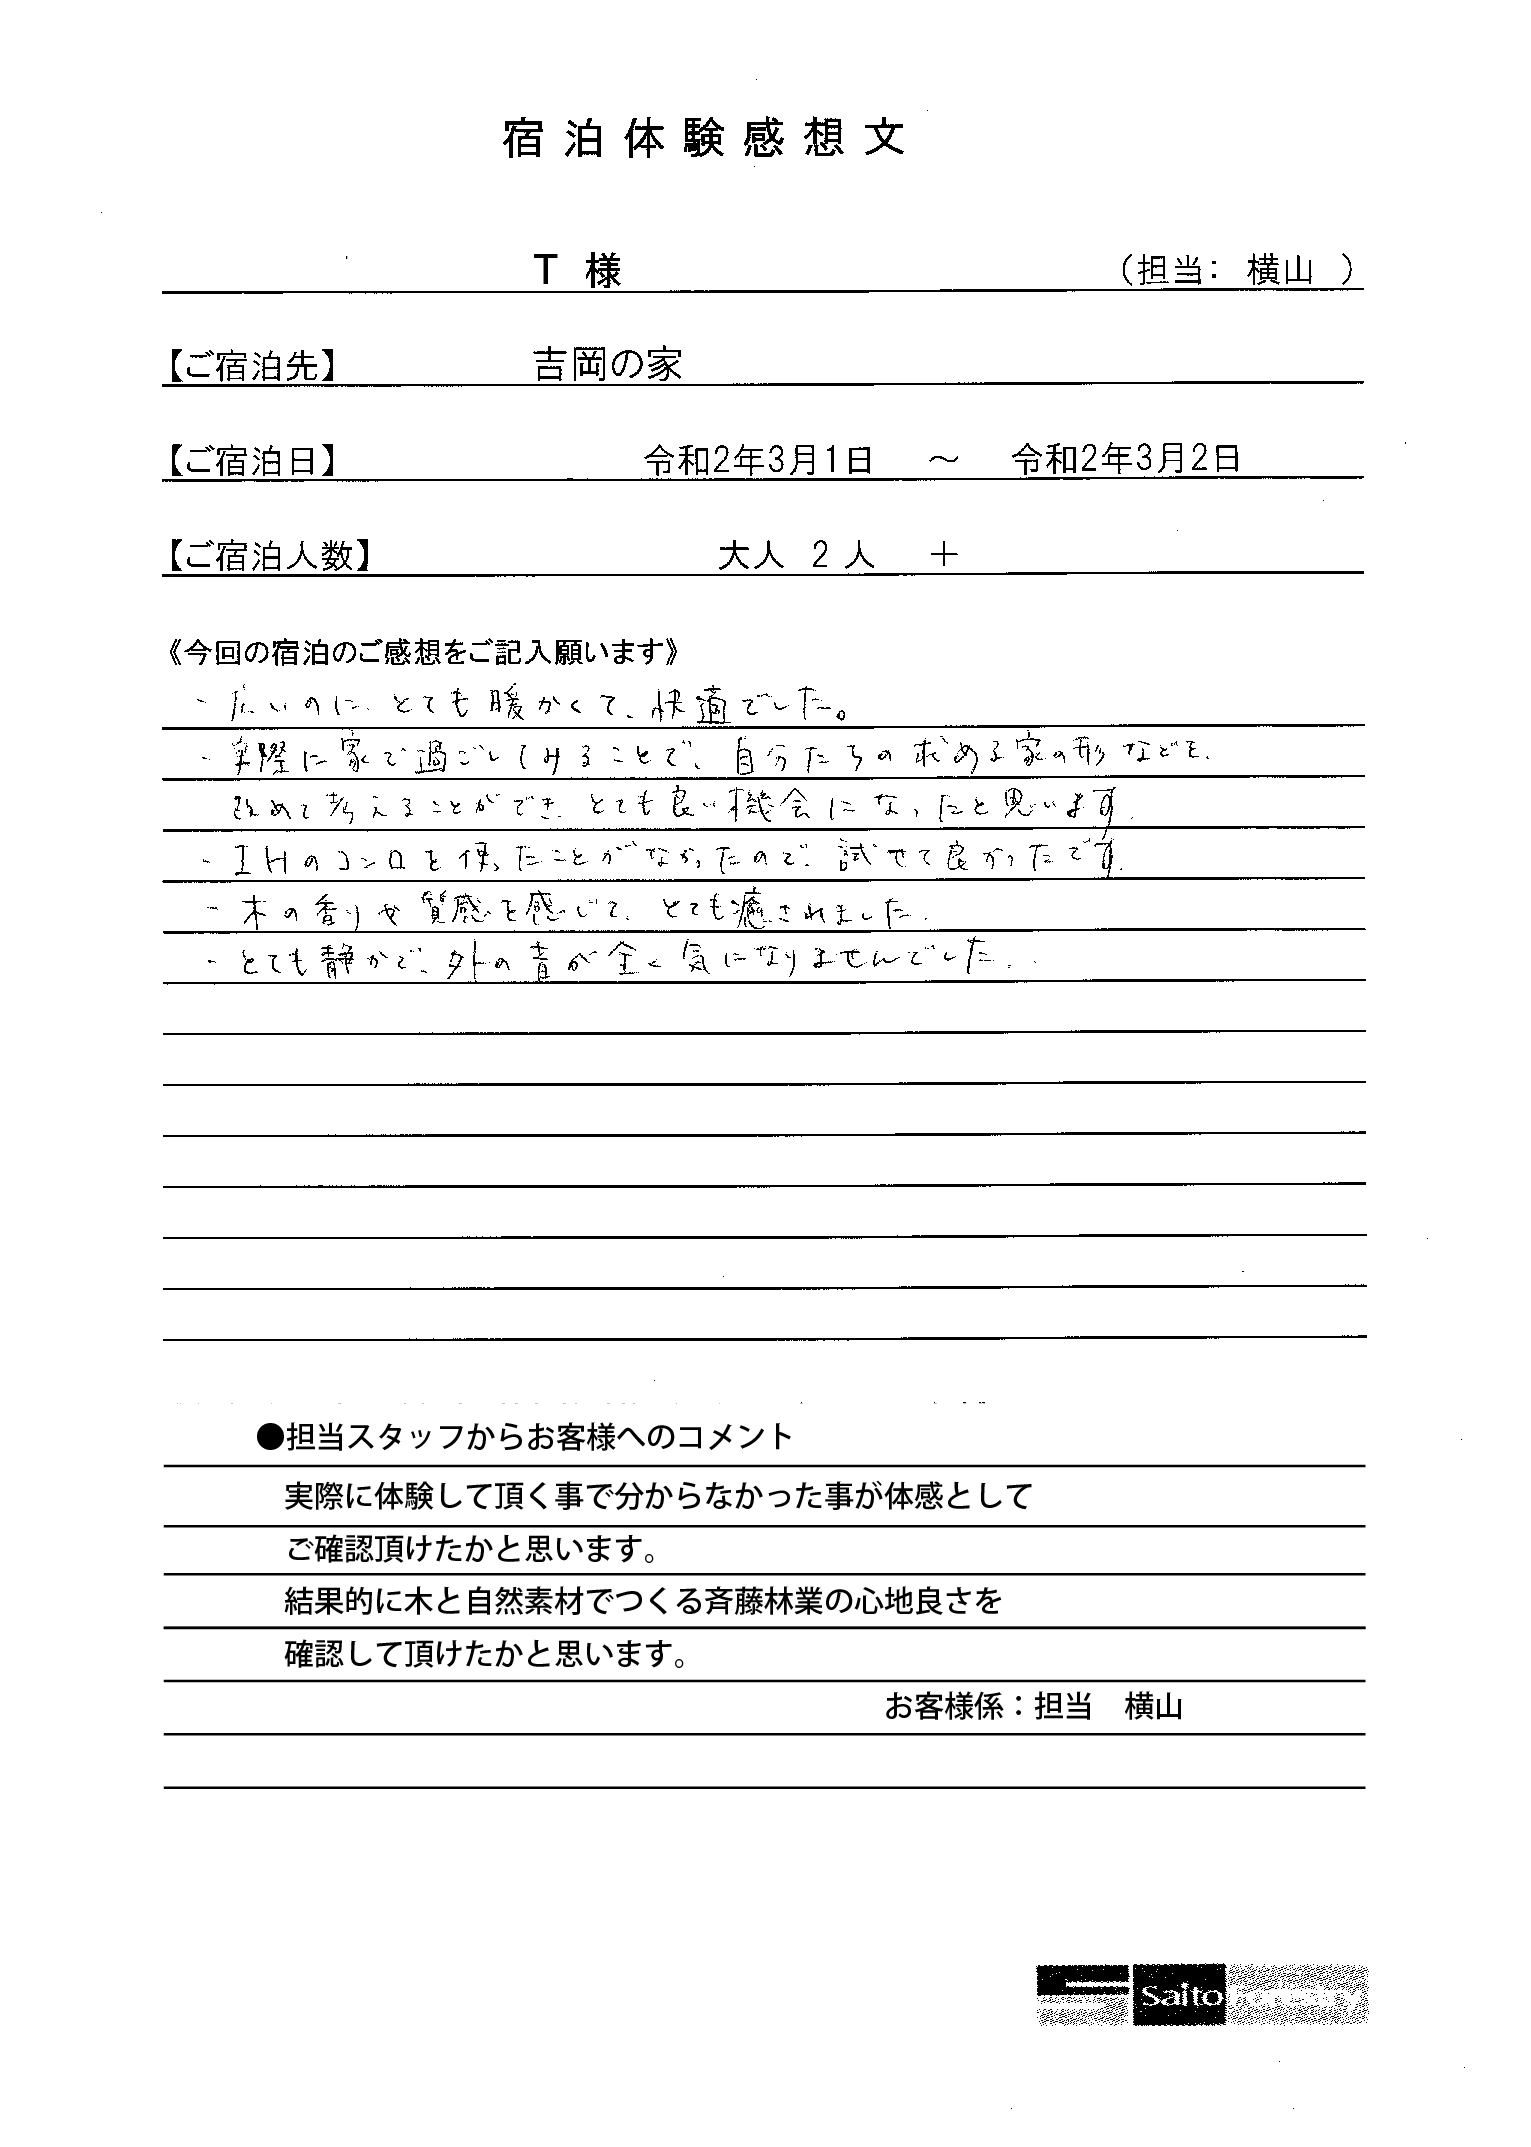 宿泊体験感想文
T 様 （担当： 横山 ）
【ご宿泊先】 吉岡の家
【ご宿泊日】 令和2年3月1日 ～ 令和2年3月2日
【ご宿泊人数】 大人 2 人 ＋
《今回の宿泊のご感想をご記入願います》
・広いのに、とても暖かくて、快適でした。
・実際に家で過ごしてみることで、自分たちの求める家の形などを、
改めて考えることができ、とても良い機会になったと思います。
・IHのコンロを使ったことがなかったので、試せて良かったです。
・木の香りや質感を感じて、とても癒されました。
・とても静かで、外の音が全く気になりませんでした。
●担当スタッフからお客様へのコメント
実際に体験して頂く事で分からなかった事が体感として
ご確認頂けたかと思います。
結果的に木と自然素材でつくる斉藤林業の心地良さを
確認して頂けたかと思います。
お客様係：担当　横山
Saito Forestry